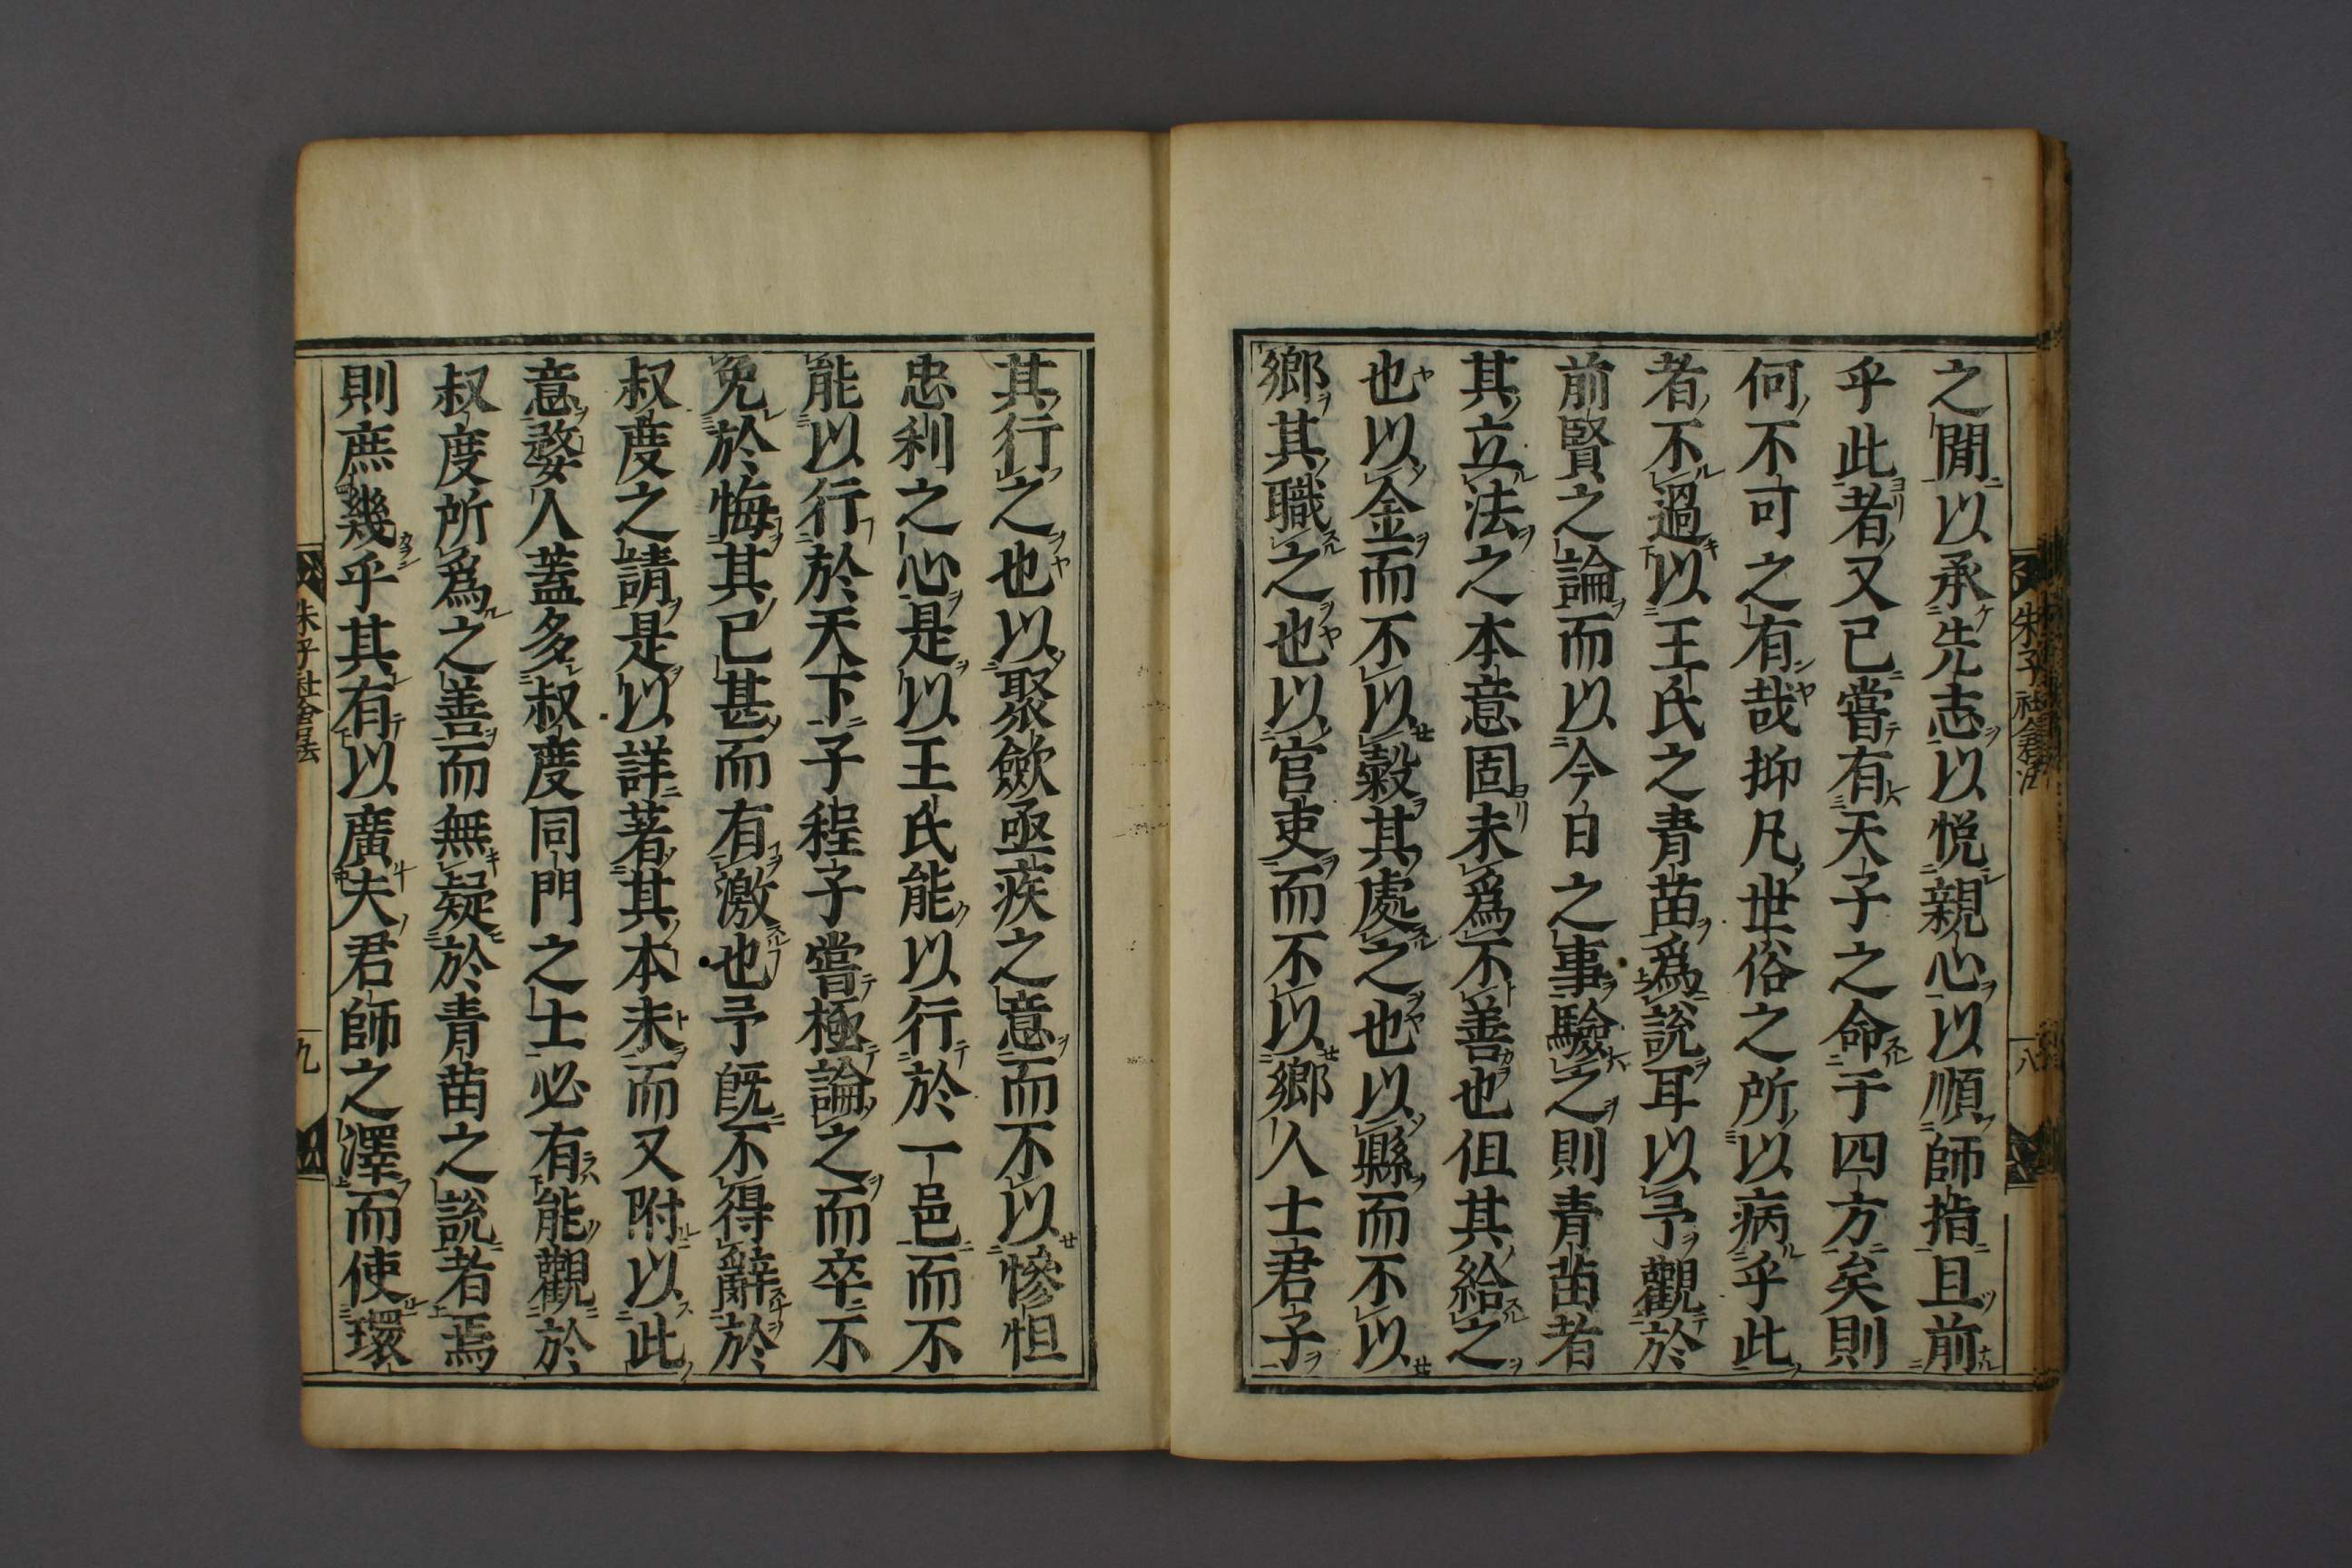 之間以承先志以悦親心以順師指且前
乎此者又已嘗有天子之命于四方矣則
何不可之有哉抑凡世俗之所以病乎此
者不過以王氏之青苗爲說耳以予觀於
前賢之論而以今日之事驗之則青苗者
其立法之本意固未爲不善也但其給之
也以金而不以穀其處之也以縣而不以
鄉其職之也以官吏而不以鄉人士君子
朱子社倉法
八
其行之也以聚歛亟疾之意而不以慘怛
忠利之心是以王氏能以行於一邑而不
能以行於天下子程子嘗極論之而卒不
免於悔其已甚而有激也予既不得辭於
叔度之請是以詳著其本末而又附以此
意婺人蓋多叔度同門之士必有能觀於
叔度所爲之善而無疑於青苗之說者焉
則庶幾乎其有以廣夫君師之澤而使環
朱子社倉法
九